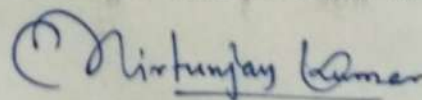 Mirtunjay Kumar